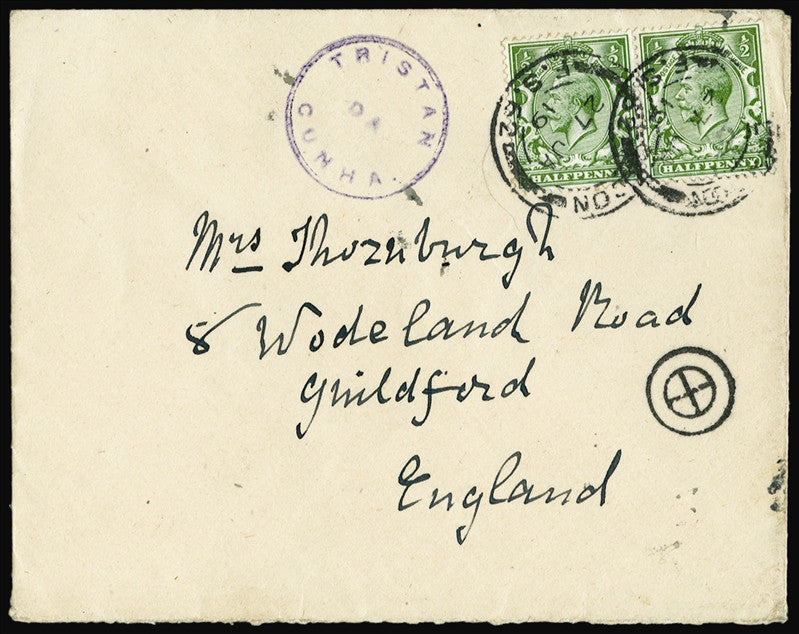 TRISTAN
DA
CUNHA.
½ ½
HALFPENNY
½ ½
HALFPENNY
Mrs Thornburgh
8 Wodeland Road
Guildford
England